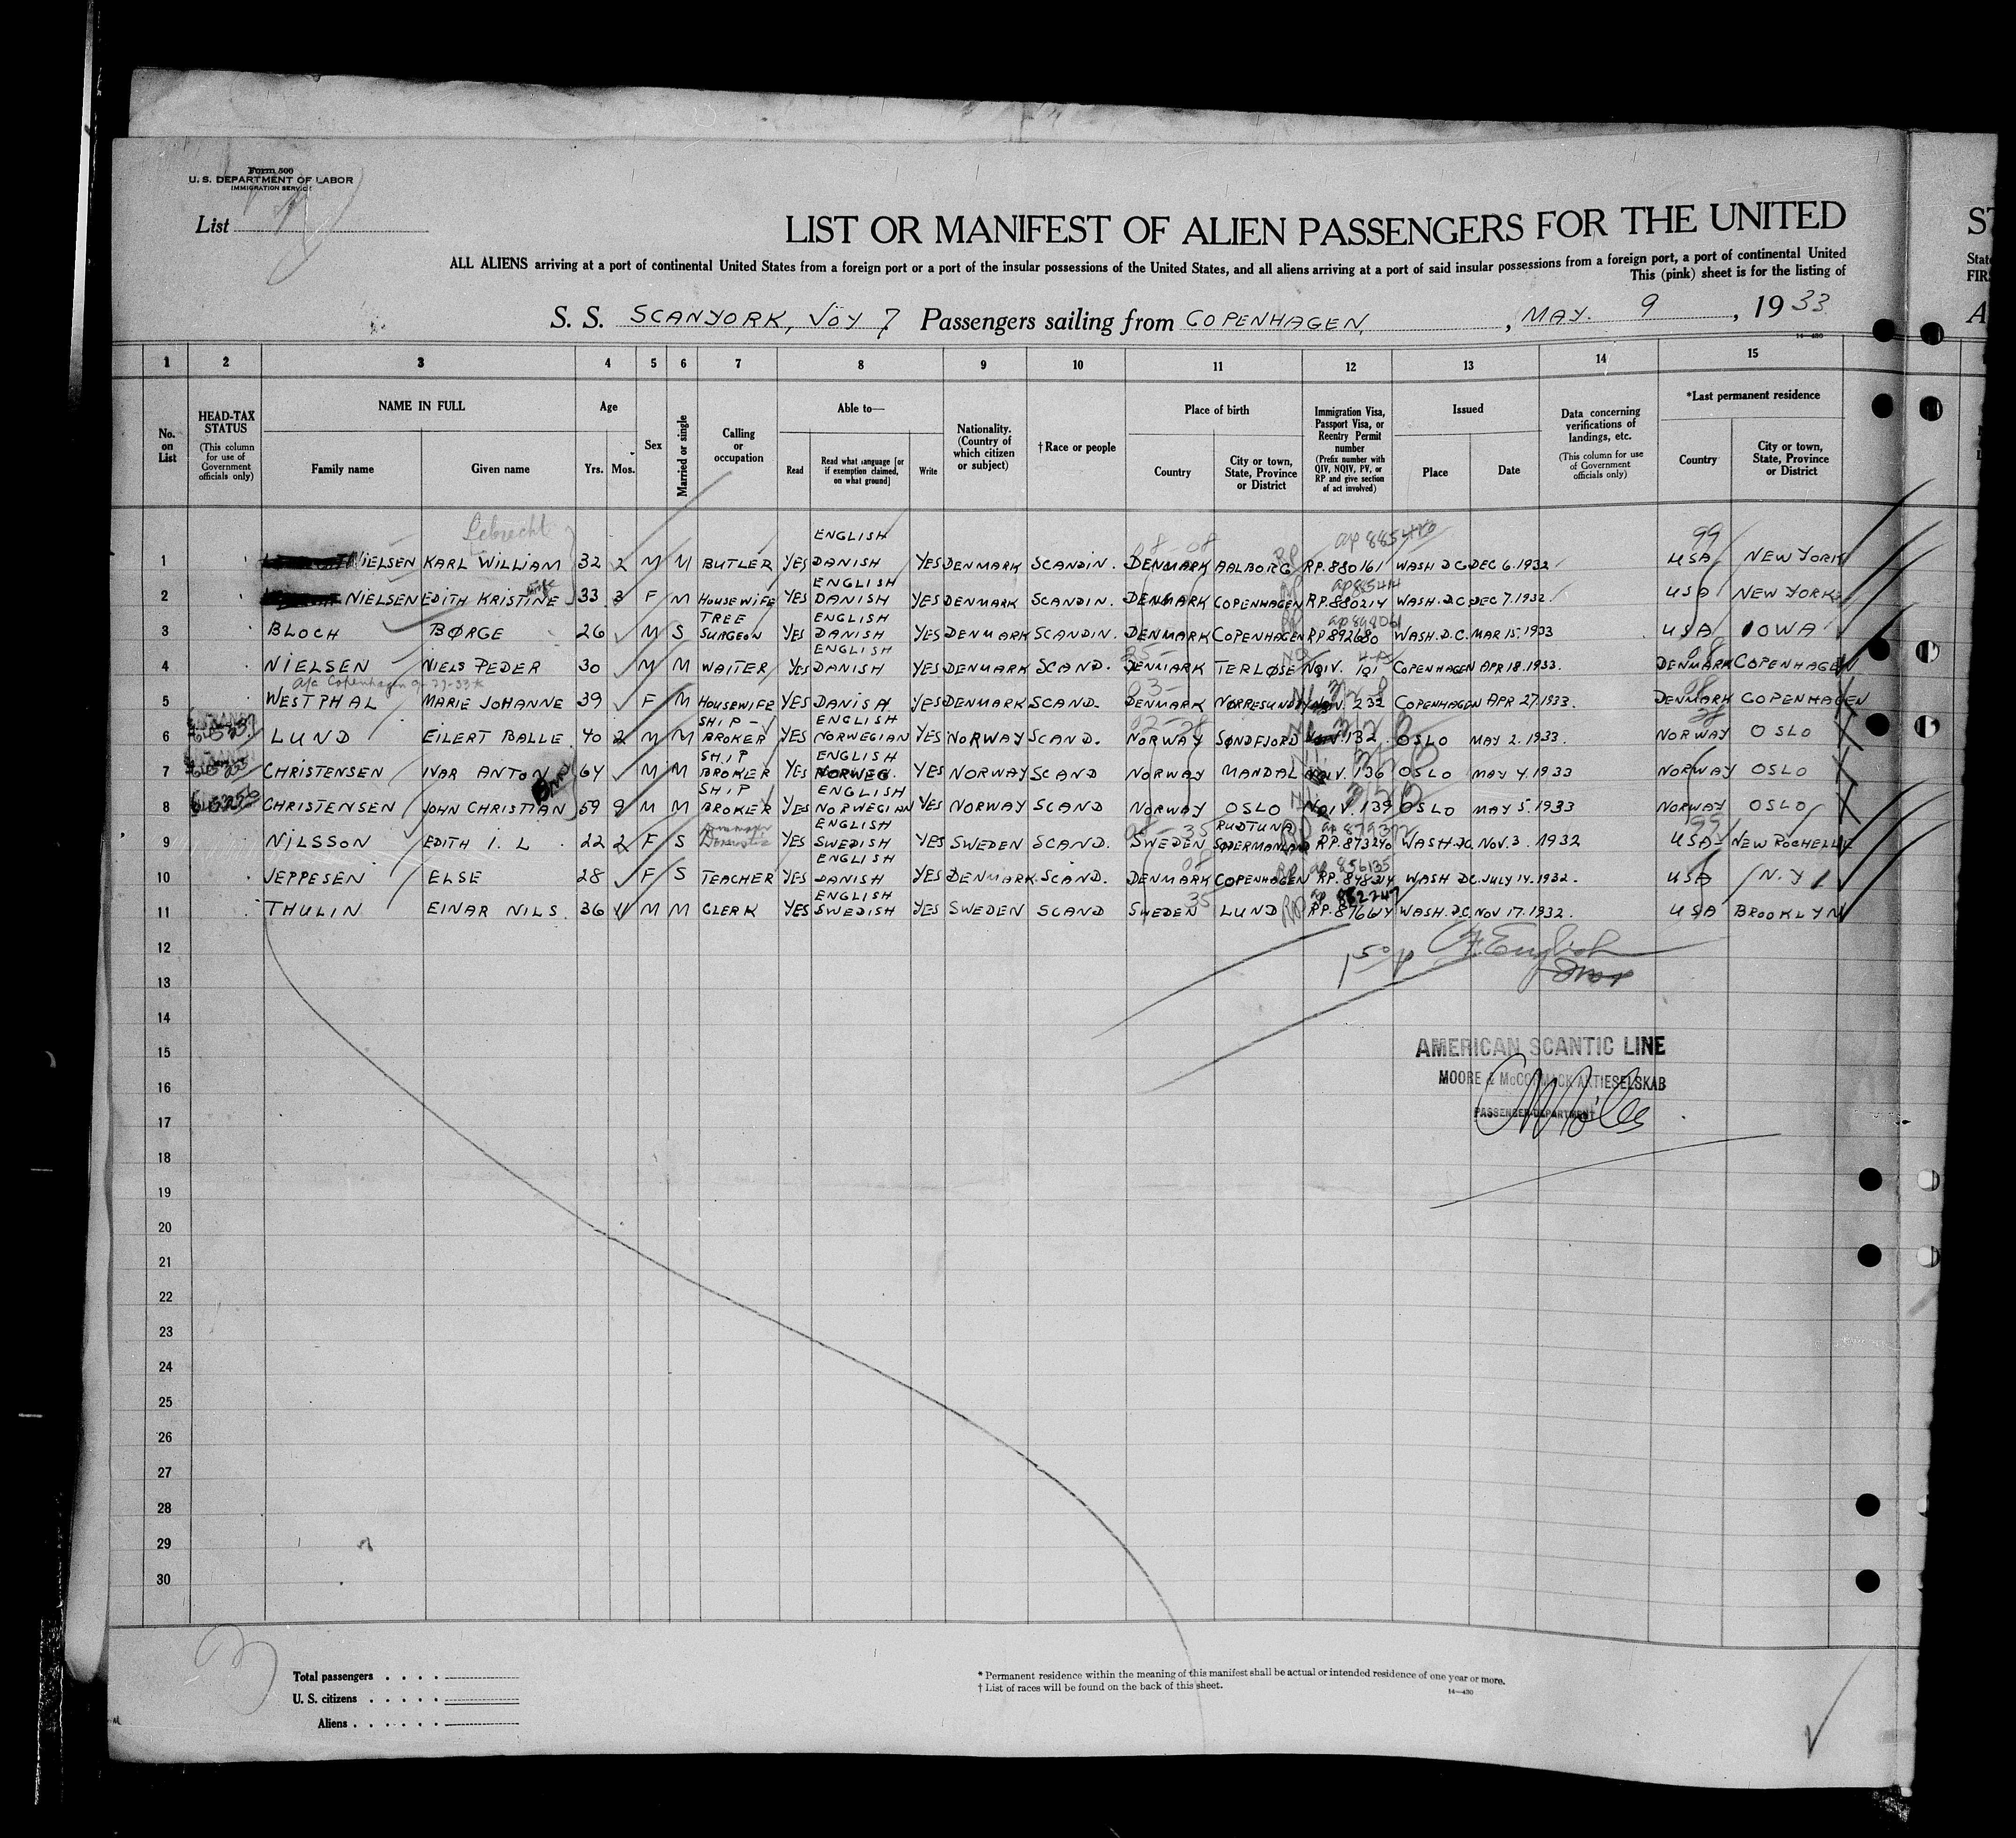 Form 500
U. S. DEPARTMENT OF LABOR
IMMIGRATION SERVICE
List
LIST OR MANIFEST OF ALIEN PASSENGERS FOR THE UNITED
ST
ALL ALIENS arriving at a port of continental United States from a foreign port or a port of the insular possessions of the United States, and all aliens arriving at a port of said insular possessions from a foreign port, a port of continental United
State
This (pink) sheet is for the listing of
FIR
S. S. SCANYORK, VOY 7 Passengers sailing from COPENHAGEN, , MAY. 9 , 19 33
A
14—430
1 2 3 4 5 6 7 8 9 10 11 12 13 14 15
No. on List
HEAD-TAX STATUS (This column for use of Government officials only)
NAME IN FULL Family name Given name
Age Yrs. Mos.
Sex
Married or single
Calling or occupation
Able to— Read Read what language [or if exemption claimed, on what ground] Write
Nationality. (Country of which citizen or subject)
† Race or people
Place of birth Country City or town, State, Province or District
Immigration Visa, Passport Visa, or Reentry Permit number (Prefix number with QIV, NQIV, PV, or RP and give section of act involved)
Issued Place Date
Data concerning verifications of landings, etc. (This column for use of Government officials only)
*Last permanent residence Country City or town, State, Province or District
Lebrecht ENGLISH 99
1 NIELSEN KARL WILLIAM 32 2 M M BUTLER YES DANISH YES DENMARK SCANDIN. DENMARK AALBORG RP. 880161 WASH DC DEC 6. 1932 USA NEW YORK
wife ENGLISH
2 NIELSEN EDITH KRISTINE 33 3 F M HOUSEWIFE YES DANISH YES DENMARK SCANDIN. DENMARK COPENHAGEN RP. 880214 WASH. DC DEC 7. 1932. USA NEW YORK
TREE ENGLISH
3 BLOCH BØRGE 26 M S SURGEON YES DANISH YES DENMARK SCANDIN. DENMARK COPENHAGEN RP 892680 WASH. D.C. MAR 15. 1933 USA IOWA
ENGLISH
4 NIELSEN NIELS PEDER 30 M M WAITER YES DANISH YES DENMARK SCAND. DENMARK TERLØSE NQIV. 101 COPENHAGEN APR 18. 1933. DENMARK COPENHAGEN
5 WESTPHAL MARIE JOHANNE 39 F M HOUSEWIFE YES DANISH YES DENMARK SCAND. DENMARK NØRRESUNDBY 232 COPENHAGEN APR 27. 1933. DENMARK COPENHAGEN
SHIP - ENGLISH
6 LUND EILERT BALLE 40 2 M M BROKER YES NORWEGIAN YES NORWAY SCAND. NORWAY SØNDFJORD 132. OSLO MAY 2. 1933. NORWAY OSLO
SHIP ENGLISH
7 CHRISTENSEN IVAR ANTON 64 M M BROKER YES NORWEG. YES NORWAY SCAND NORWAY MANDAL NQIV. 136 OSLO MAY 4. 1933 NORWAY OSLO
SHIP ENGLISH
8 CHRISTENSEN JOHN CHRISTIAN 59 9 M M BROKER YES NORWEGIAN YES NORWAY SCAND NORWAY OSLO NQIV. 139 OSLO MAY 5. 1933 NORWAY OSLO
ENGLISH RUDTUNA 99
9 NILSSON EDITH I. L. 22 2 F S Domestic YES SWEDISH YES SWEDEN SCAND. SWEDEN SØDERMANLAND RP. 873240 WASH. DC. NOV. 3. 1932 USA NEW ROCHELLE
ENGLISH
10 JEPPESEN ELSE 28 F S TEACHER YES DANISH YES DENMARK SCAND. DENMARK COPENHAGEN RP. 848314 WASH DC. JULY 14. 1932. USA N.Y.
ENGLISH
11 THULIN EINAR NILS. 36 11 M M CLERK YES SWEDISH YES SWEDEN SCAND SWEDEN LUND RP. 876614 WASH. D.C. NOV 17. 1932. USA BROOKLYN
12
13
14
15
16
17
18
19
20
21
22
23
24
25
26
27
28
29
30
English
AMERICAN SCANTIC LINE
MOORE & McCORMACK AKTIESELSKAB
PASSENGER DEPARTMENT
Total passengers . . . .
U. S. citizens . . . . .
Aliens . . . . . .
* Permanent residence within the meaning of this manifest shall be actual or intended residence of one year or more.
† List of races will be found on the back of this sheet.
14—430